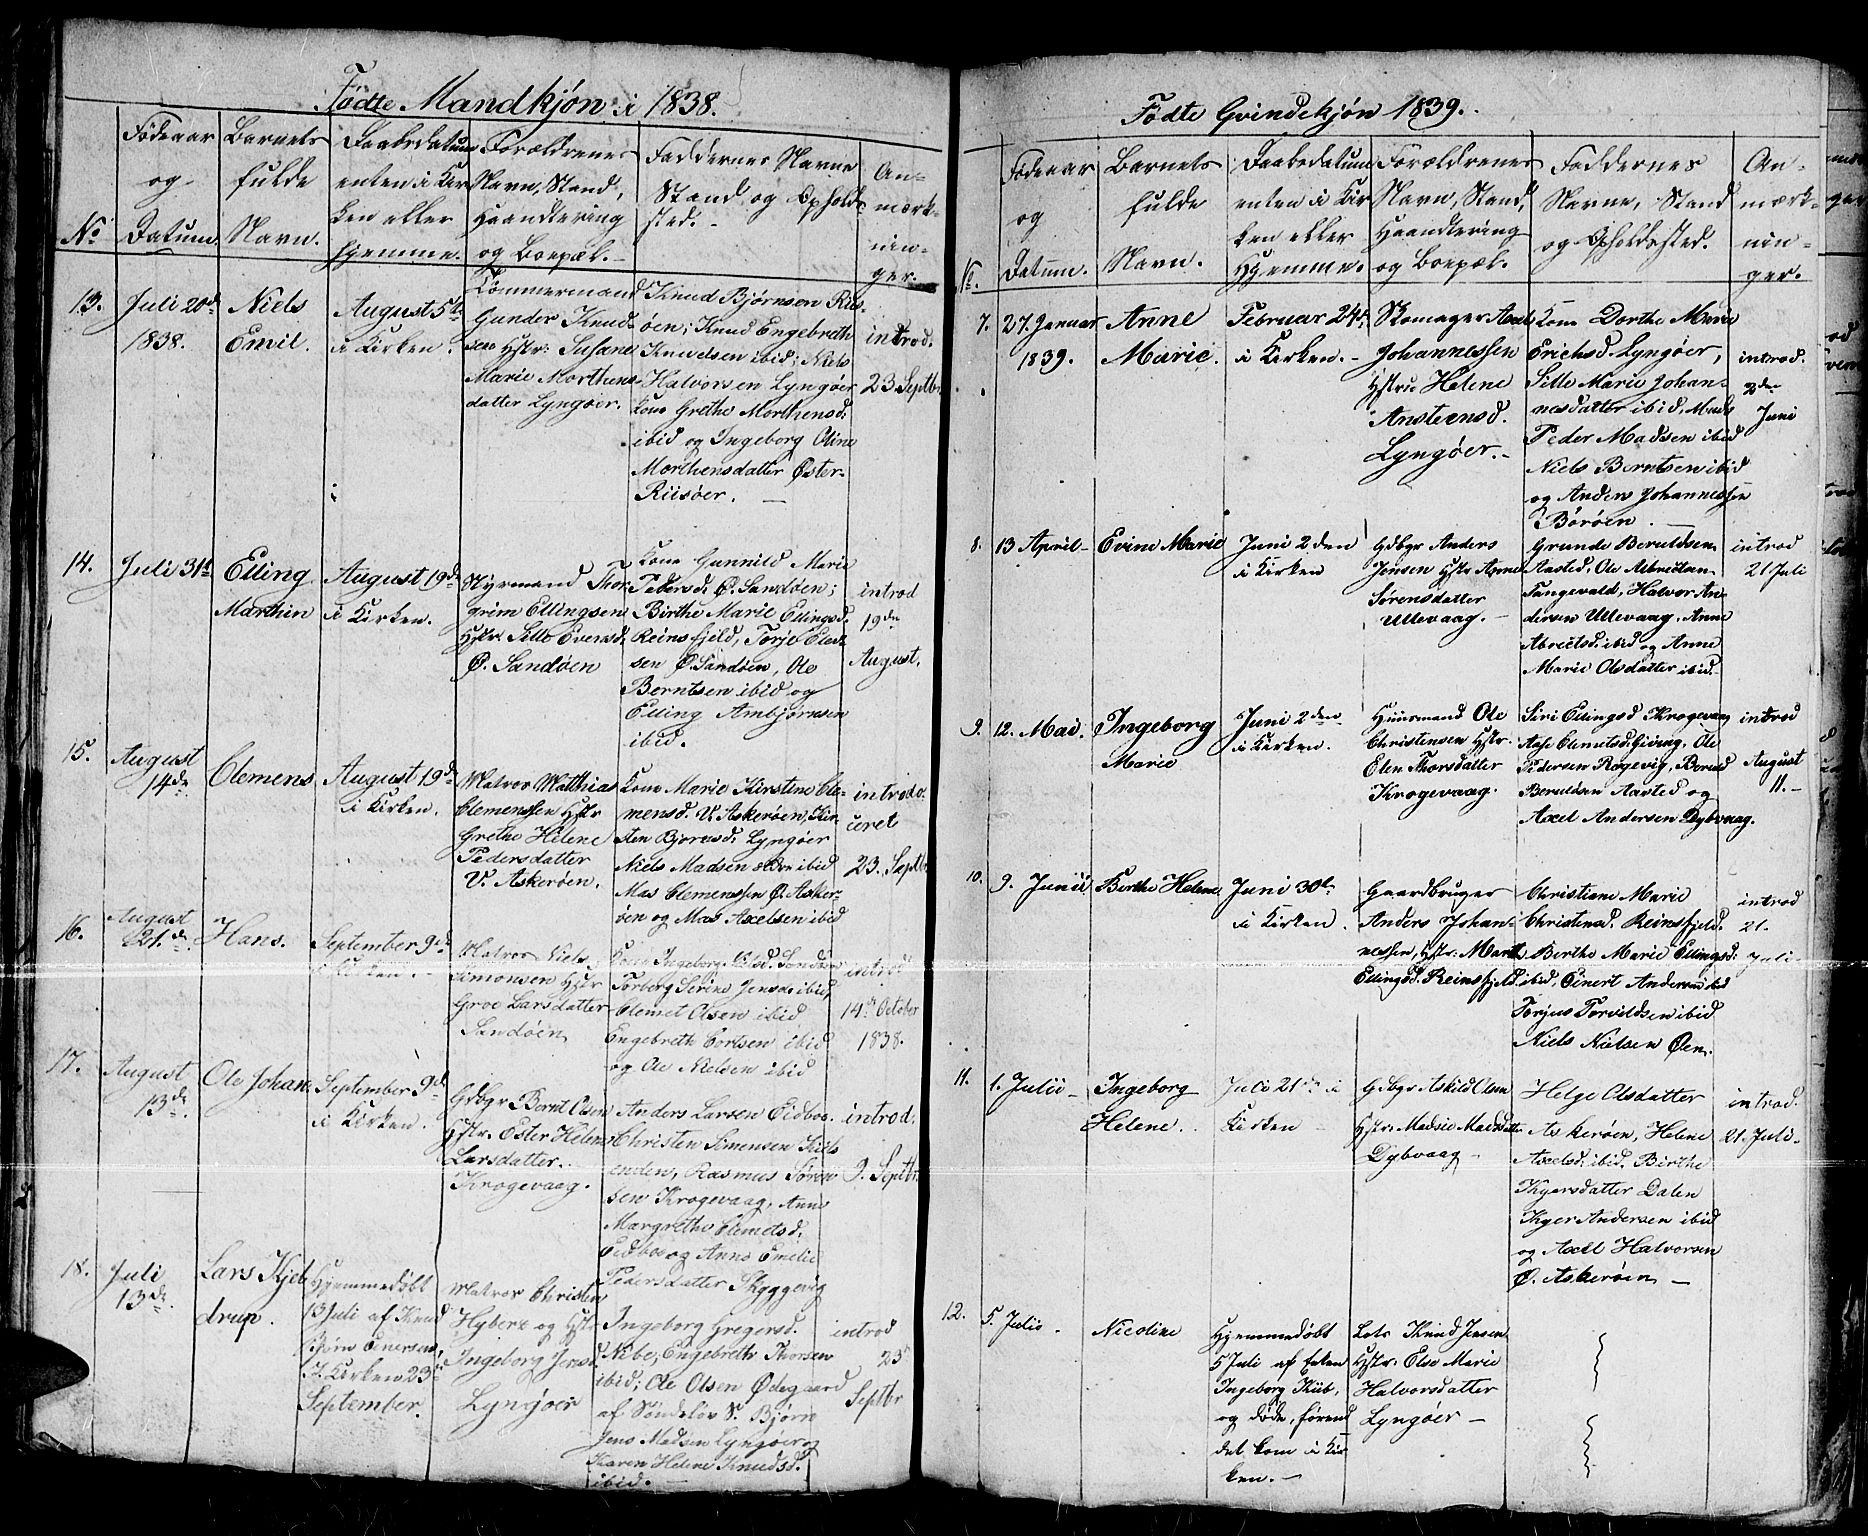 Fødte Mandkjøn i 1838.
No
Fødeaar
og
Datum.
Barnets
fulde
Navn.
Daabsdatum
enten i Kir
ken eller
Hjemme.
Forældrenes
Navn, Stand,
Haandtering
og Boepæl.
Faddernes Navne
Stand og Ophold
sted.
An-
mærk-
nin-
ger.
13.
Juli 20de
1838.
Niels
Emil.
August 5te
i Kirken.
Tømmermand
Gunder Knud
sen Hstr: Susane
Marie Morthens
datter Lyngøer.
Knud Bjørnsen Riis
øen; Knud Engebreth
Knudsen ibid; Niels
Halvorsen Lyngøer
Kone Grethe Morthensd:
ibid og Ingeborg Oline
Morthensdatter Øster-
Riisøer.
introd.
23 Septbr.
14.
Juli 31te
Elling
Marthin
August 19de
i Kirken.
Styrmand Thor
grim Ellingsen
Hstr: Sille Evensd.
Ø. Sandøen
Kone Gunnild Marie
Pedersd. Ø. Sandøen;
Birthe Marie Ellingsd.
Reinsfjeld, Torje Eled
sen Ø. Sandøen, Ole
Berntsen ibid og
Elling Ambjørnsen
ibid.
introd
19de
August.
15.
August
14de
Clemens
August 19de
i Kirken.
Matros Matthias
Clemenssen Hstr
Grethe Helene
Pedersdatter
V. Askerøen.
Kone Marie Kirstine Cle-
mensd. V. Askerøen, Kir
sten Bjørnsd. Lyngøer
Niels Madsen ælden ibid
Mas Clemenssen Ø. Asker-
øen og Mas Axelsen ibid
introdu
ceret
23. Septbr
16.
August
21de
Hans.
September 9de
i Kirken.
Matros Niels
Simonsen Hstr
Groe Larsdatter
Sandøen
Kone Ingeborg Olsd. Sandøen
Torberg Serine Jensd. ibid,
Clemet Olsen ibid
Engebreth Corlsen ibid
og Ole Nielsen ibid
introd
14de October
1838.
17.
August
13de
Ole Johan
September 9de
i Kirken.
Gdbgr Bernt Olsen
Hstr. Ester Helene
Larsdatter.
Krogevaag.
Anders Larsen Eidboe.
Christen Simensen Kiils
enden, Rasmus Søren
sen Krogevaag, Anne
Margrethe Clemetsd.
Eidboe og Anne Emelie
Pedersdatter Skyggevig
introd.
9. Septbr
18.
Juli
13de
Lars Kjel
drup.
Hjemmedøbt
13 Juli af Knud
Bjørn Einersen
I Kirken 23de
September.
Matros Christen
Hybert og Hstr
Ingeborg Jensd.
Lyngøer
Ingeborg Gregersd.
Nibe, Engebreth Thorsen
ibid; Ole Olsen Ødegaard
af Søndeløv S. Bjørn
Jens Madsen Lyngøer og
Karen Helene Knudsd.
ibid.
introd
23
Septbr
Fødte Qvindekjøn 1839.
No
Fødeaar
og
Datum.
Barnets
fulde
Navn.
Daabsdatum
enten i Kir
ken eller
Hjemme.
Forældrenes
Navn, Stand,
Haandtering
og Boepæl.
Faddernes
Navne, Stand
og Opholdssted.
An-
mærk-
nin-
ger.
7.
27. Januar
1839.
Anne
Marie.
Februar 24de
i Kirken.
Skomager Axel
Johannessen
Hstrue Helene
Anstensd.
Lyngøer.
Kone Dorthe Marie
Erichsd. Lyngøer,
Sille Marie Johan-
nesdatter ibid, Mads
Peder Madsen ibid
Niels Berntsen ibid
og Anders Johannessen
Børøen.
introd.
2den
Juni
8.
13 April
Evine Marie
Juni 2den
i Kirken
Gdbgr Anders
Jensen Hstr Anne
Sørensdatter
Ullevaag.
Grunde Beruldsen
Aasted, Ole Albretsen
Tangevald, Halvor An-
dersen Ullevaag, Anne
Abretsd: ibid og Anne
Marie Olsdatter ibid.
introd
21 Juli
9.
12. Mai.
Ingeborg
Marie
Juni 2den
i Kirken.
Huusmand Ole
Christensen Hstr.
Elen Thorsdatter
Krogevaag.
Siri Ellingsd Krogevaag
Aase Clemetsd. Giving, Ole
Pedersen Rogevig, Berud
Beruldsen Aasted og
Axel Andersen Dybvaag.
introd
August
11.
10.
9. Junii
Birthe Helene
Juni 30te
i Kirken.
Gaardbruger
Anders Johan-
nessen, Hstr. Marth
Ellingsd. Reinsfjeld
Christiane Marie
Christensd. Reinsfjeld.
Berthe Marie Ellingsd:
ibid, Einert Andersen ibid
Torjus Torvildsen ibid
Niels Nielsen Øen.
introd
21.
Juli
11.
1. Julii
Ingeborg
Helene.
Juli 21de i
Kirken
Gdbgr Askild Olsen
Hstr: Madsie Madsdatter
Dybvaag
Helge Olsdatter
Askerøen, Helene
Axelsd. ibid. Birthe
Kgersdatter Dalen
Kger Andersen ibid
og Axel Halvorsen
Ø. Askerøen
introd.
21. Juli.
12.
5. Julii
Nicoline
Hjemmedøbt
5 Juli af Enken
Ingeborg Kiib,
og døde, førend
det kom i Kir
ken.
Lots Knud Jensen
Hstr: Else Marie
Halvorsdatter
Lyngøer